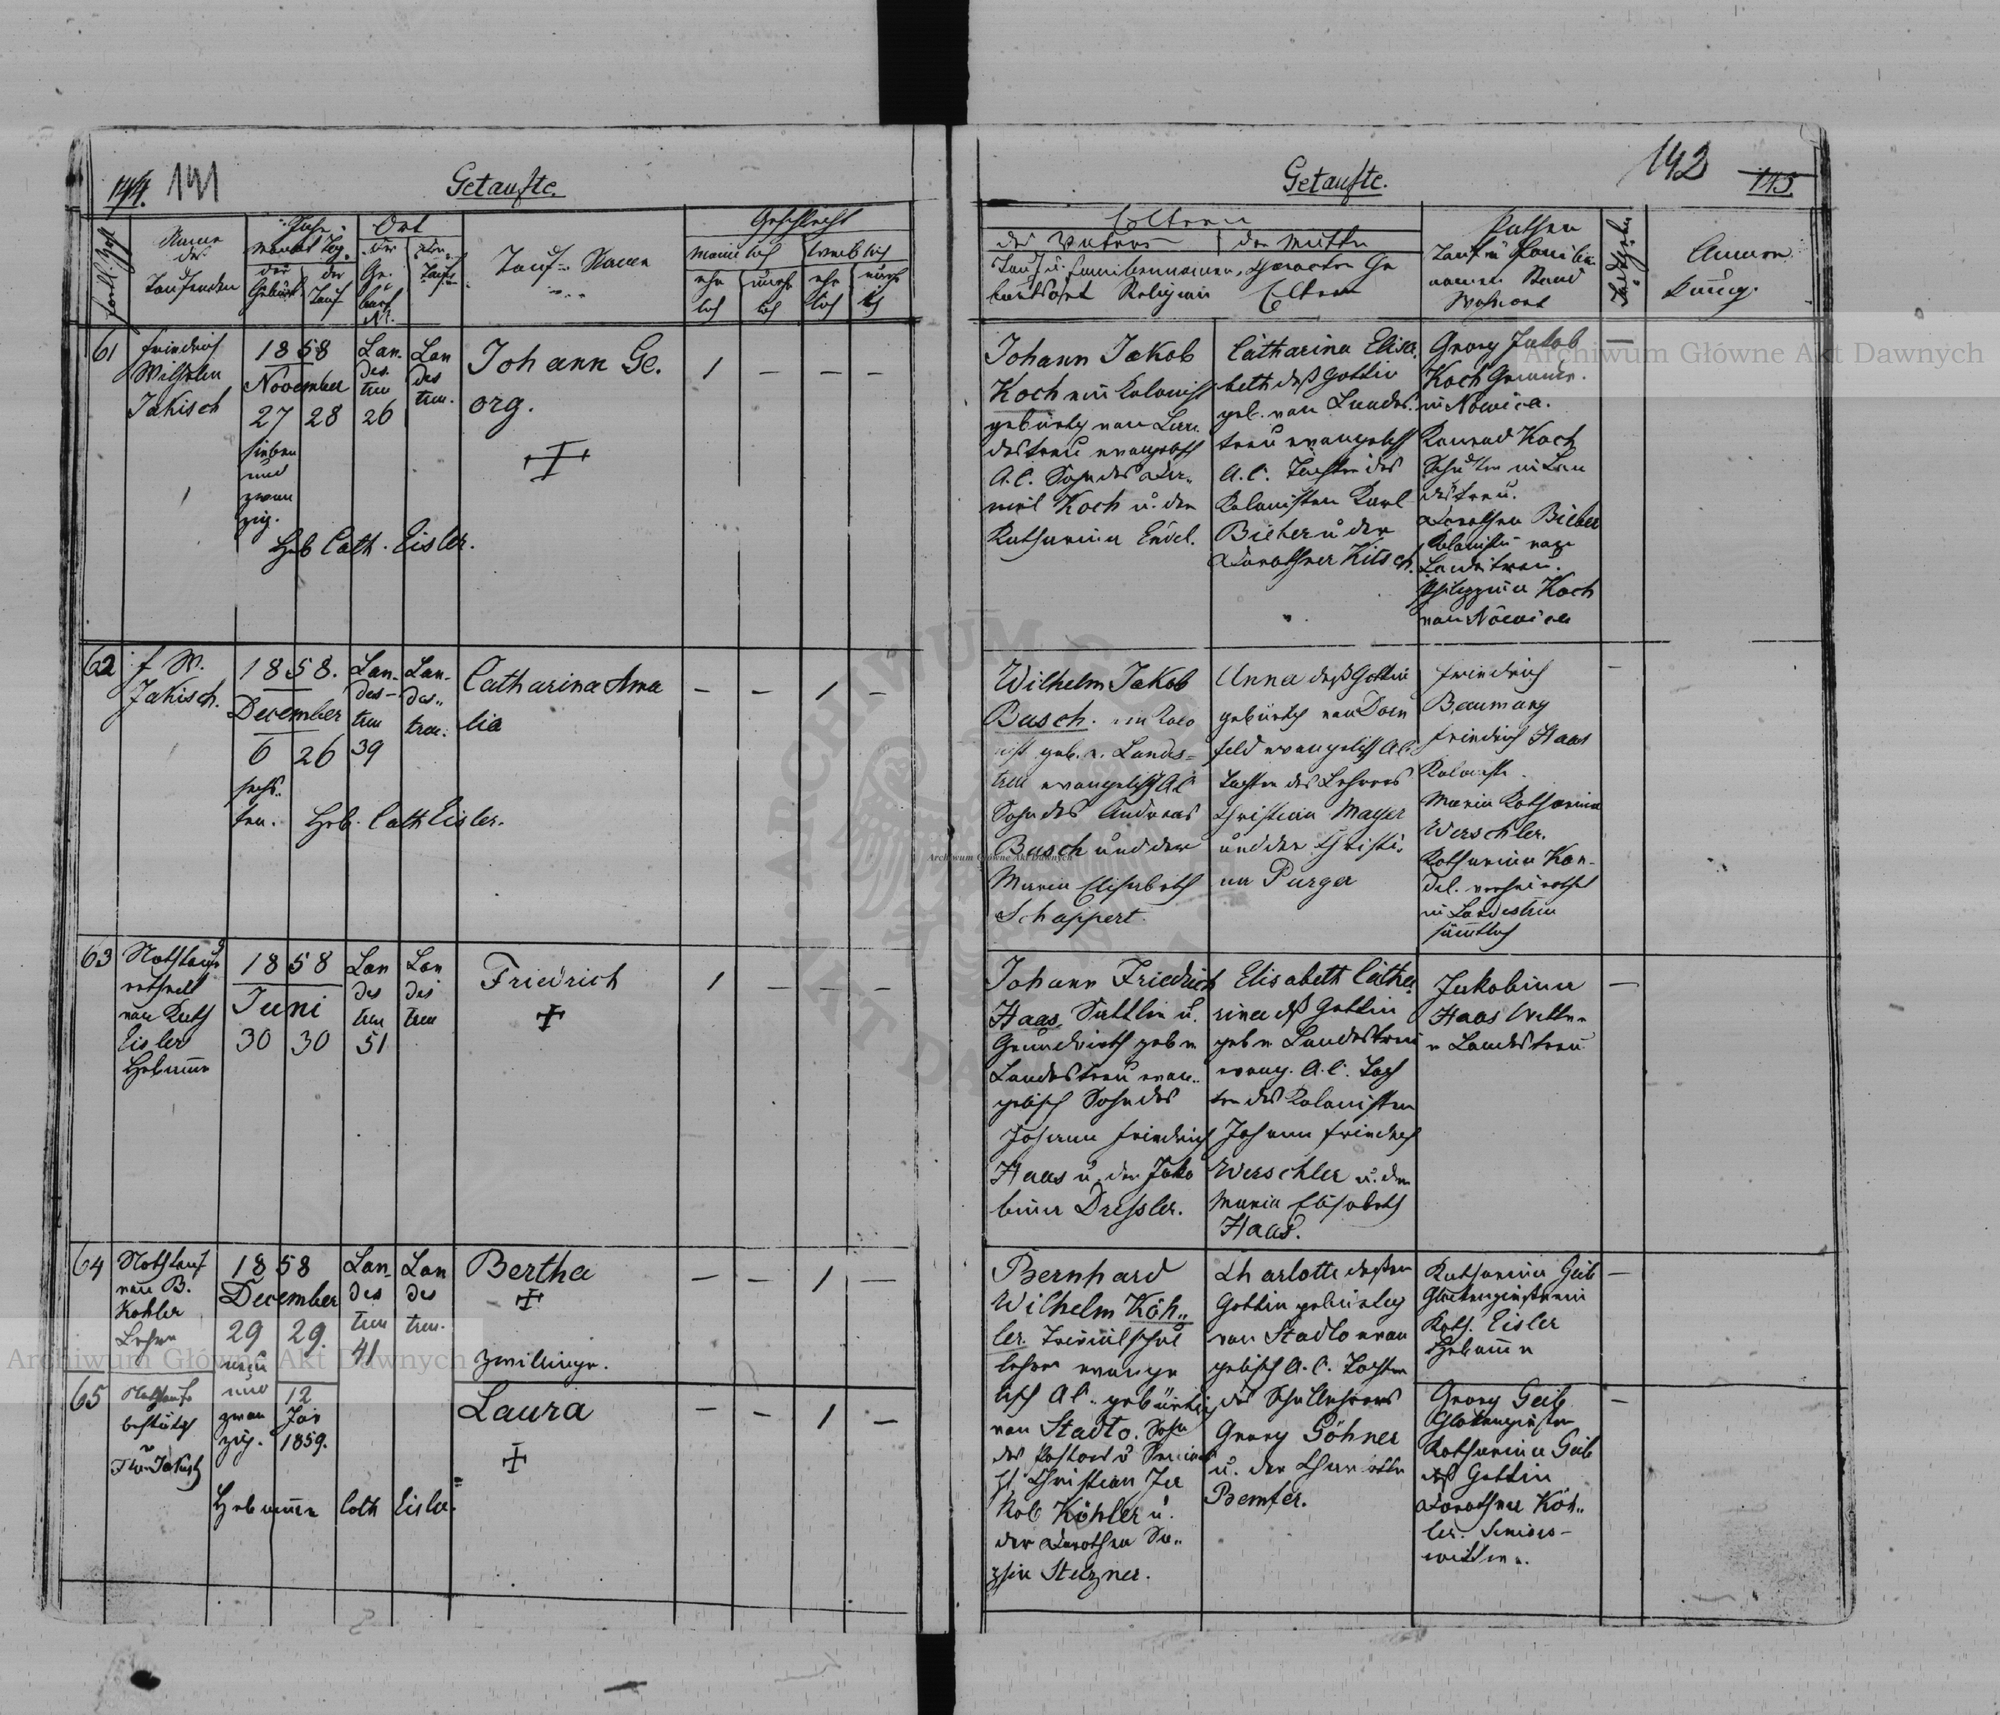 144. 141
Getaufte.
fortl. Zahl
Name
der
Taufenden
Jahr
Monat Tag
der
Geburt
der
Tauf
Ort
der
Ge
burt
Nr.
der
Taufe
Tauf-Namen
Geschlecht
männlich
weiblich
ehe
lich
unehe
lich
ehe
lich
unehe
lich
61
Friedrich
Wilhelm
Jakisch
1858
November
27 28
sieben
und
zwan
zig.
Lan.
des
treu
26
Lan
des
treu.
Johann Ge.
org.
1 — — —
Heb Cath. Eisler.
62
F. W.
Jakisch.
1858.
December
6 26
sechs
ten.
Lan-
des-
treu
39
Lan-
des-
treu.
Catharina Ama
lia
— — 1 —
Heb. Cath Eisler.
63
Nothtaufe
ertheilt
von Kath
Eisler
Hebamme
1858
Juni
30 30
Lan
des
treu
51
Lan
des
treu
Friedrich
1 — — —
64
Nothtauf
von B.
Kohler
Lehrer
1858
December
29 29.
neun
und
zwan
zig.
Lan-
des
treu
41
Lan
des
treu.
Bertha
Zwillinge.
— — 1 —
65
Nothtaufe
bestätigt
12
Jan
1859.
Laura
— — 1 —
Hebamme Cath Eisler.
Getaufte.
142 145
Eltern
des Vaters der Mutter
Tauf u. Familiennamen, Character Ge
burtsort Religion Eltern
Pathen
Tauf u Familien
namen Stand
Wohnort
Anmer
kung.
Johann Jakob
Koch ein Kolonist
gebürtig von Lan
destreu evangelisch
A.C. Sohn des Da-
niel Koch u. der
Katharina Endel.
Catharina Elisa
beth deß Gattin
geb. von Landes.
treu evangelisch
A.C. Tochter des
Kolonisten Karl
Bieber u der
Dorothea Kitsch.
Georg Jakob
Koch
in Nowica.
Konrad Koch
in Lan
destreu.
Dorothea Bieber
Kolonistin von
Landestreu.
Philippina Koch
von Nowica
—
Wilhelm Jakob
Busch. ein Kolo
nist geb. v. Landes-
treu evangelisch A.C
Sohn des Andreas
Busch und der
Maria Elisabeth
Schappert.
Anna deß Gattin
gebürtig von Dorn
feld evangelisch A.C.
Tochter des Lehrers
Christian Mayer
und der Christi-
na Purger
Friedrich
Baumung
Friedrich Haas
Koloniste.
Maria Katharina
Werschler.
Katharina Kon-
del. verheirathet
in Landestreu
sämtlich
—
Johann Friedrich
Haas, Sattler u.
Grundwirth geb v
Landestreu evan-
gelisch Sohn des
Johann Friedrich
Haas u. der Jako
bina Dressler.
Elisabeth Catha
rina deß Gattin
geb v Landestreu
evang. A.C. Toch
ter des Kolonisten
Johann Friedrich
Werschler u. der
Maria Elisabeth
Haas.
Jakobina
Haas Wittwe
v Landestreu
—
Bernhard
Wilhelm Köh-
ler. Trivialschul
lehrer evange
lisch A.C. gebürtig
von Stadlo. Sohn
des Pastors u Senior
Christian Ja
kob Köhler u.
der Dorothea So-
phia Stelzner.
Charlotte dessen
Gattin gebürtig
von Stadlo evan
gelisch A.C. Tochter
des Schullehrers
Georg Göhner
u. der Charlotte
Bemfer.
Katharina Geib
Glockengießerin
Kath. Eisler
Hebamme
—
Georg Geib
Glockengießer
Katharina Geib
deß Gattin
Dorothea Köh-
ler. Seniors-
wittwe.
—
Archiwum Główne Akt Dawnych
Archiwum Główne Akt Dawnych
Archiwum Główne Akt Dawnych